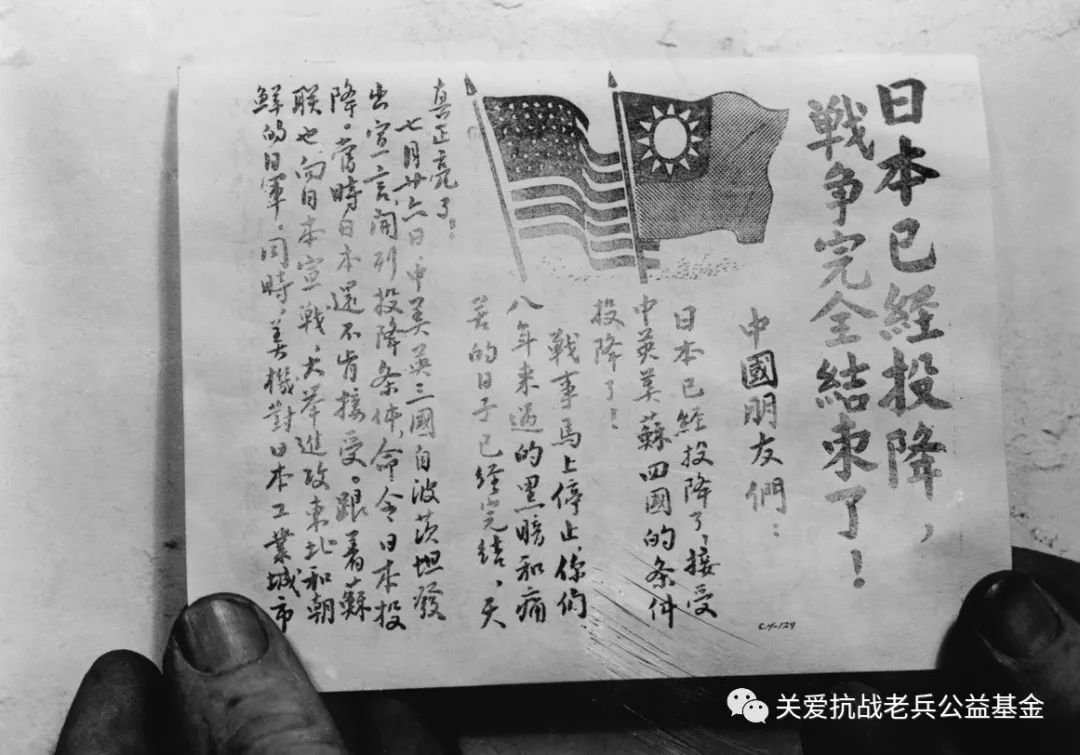 日本已経投降，
戦争完全結束了！
中國朋友們：
日本已経投降了，接受
中英美蘇四國的条件
投降了！
戰事馬上停止，你們
八年来過的黑暗和痛
苦的日子已経完結，天
真正亮了！
七月廿六日中美英三國自波茨坦發
出宣言，開列投降条件，命令日本投
降。當時日本還不肯接受。跟着蘇
联也向日本宣戰，大举進攻東北和朝
鮮的日軍。同時，美機對日本工業城市
C.H-129
关爱抗战老兵公益基金